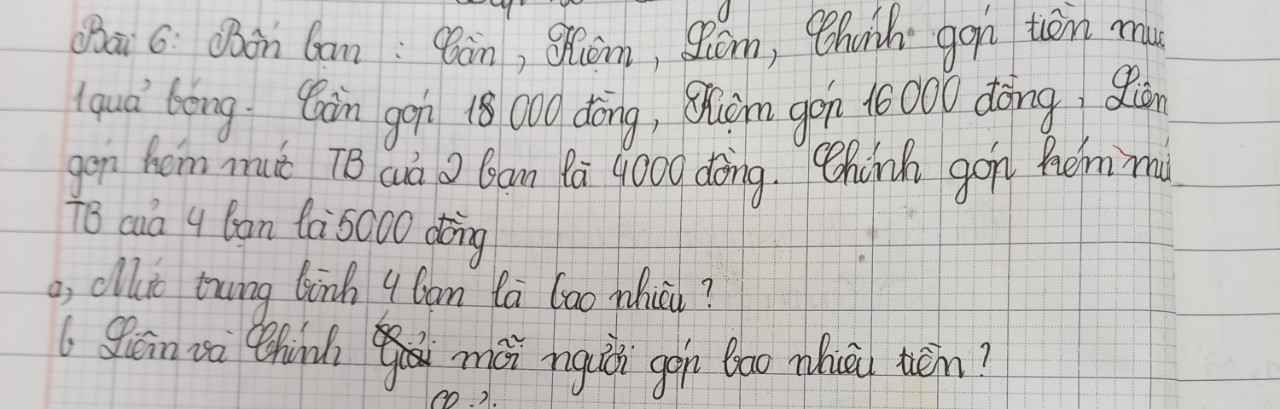 Bài 6: Bốn bạn: Cần, Kiệm, Liêm, Chính góp tiền mua
1 quả bóng. Cần góp 18 000 đồng, Kiệm góp 16 000 đồng, Liêm
góp kém mức TB của 2 bạn là 4000 đồng. Chính góp kém mứ
TB của 4 bạn là 5000 đồng
a, Mức trung bình 4 bạn là bao nhiêu?
b Liêm và Chính mỗi người góp bao nhiêu tiền?